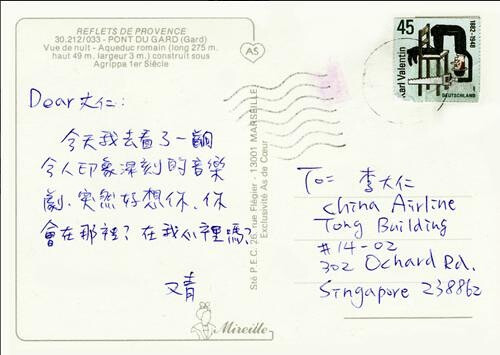 REFLETS DE PROVENCE
30.212/033 - PONT DU GARD (Gard)
Vue de nuit - Aqueduc romain (long 275 m.
haut 49 m. largeur 3 m.) construit sous
Agrippa 1er Siècle
AS
45
1882-1948
Karl Valentin
DEUTSCHLAND
Dear 大仁:
今天我去看了一齣
令人印象深刻的音樂
劇、突然好想你、你
會在那裡? 在我心裡嗎?
文青
Sté P.E.C. 26, rue Flégier - 13001 MARSEILLE
Exclusivité As de Cœur
To= 李大仁
China Airline
Tong Building
#14-02
302 Ochard Rd.
Singapore 238862
Mireille